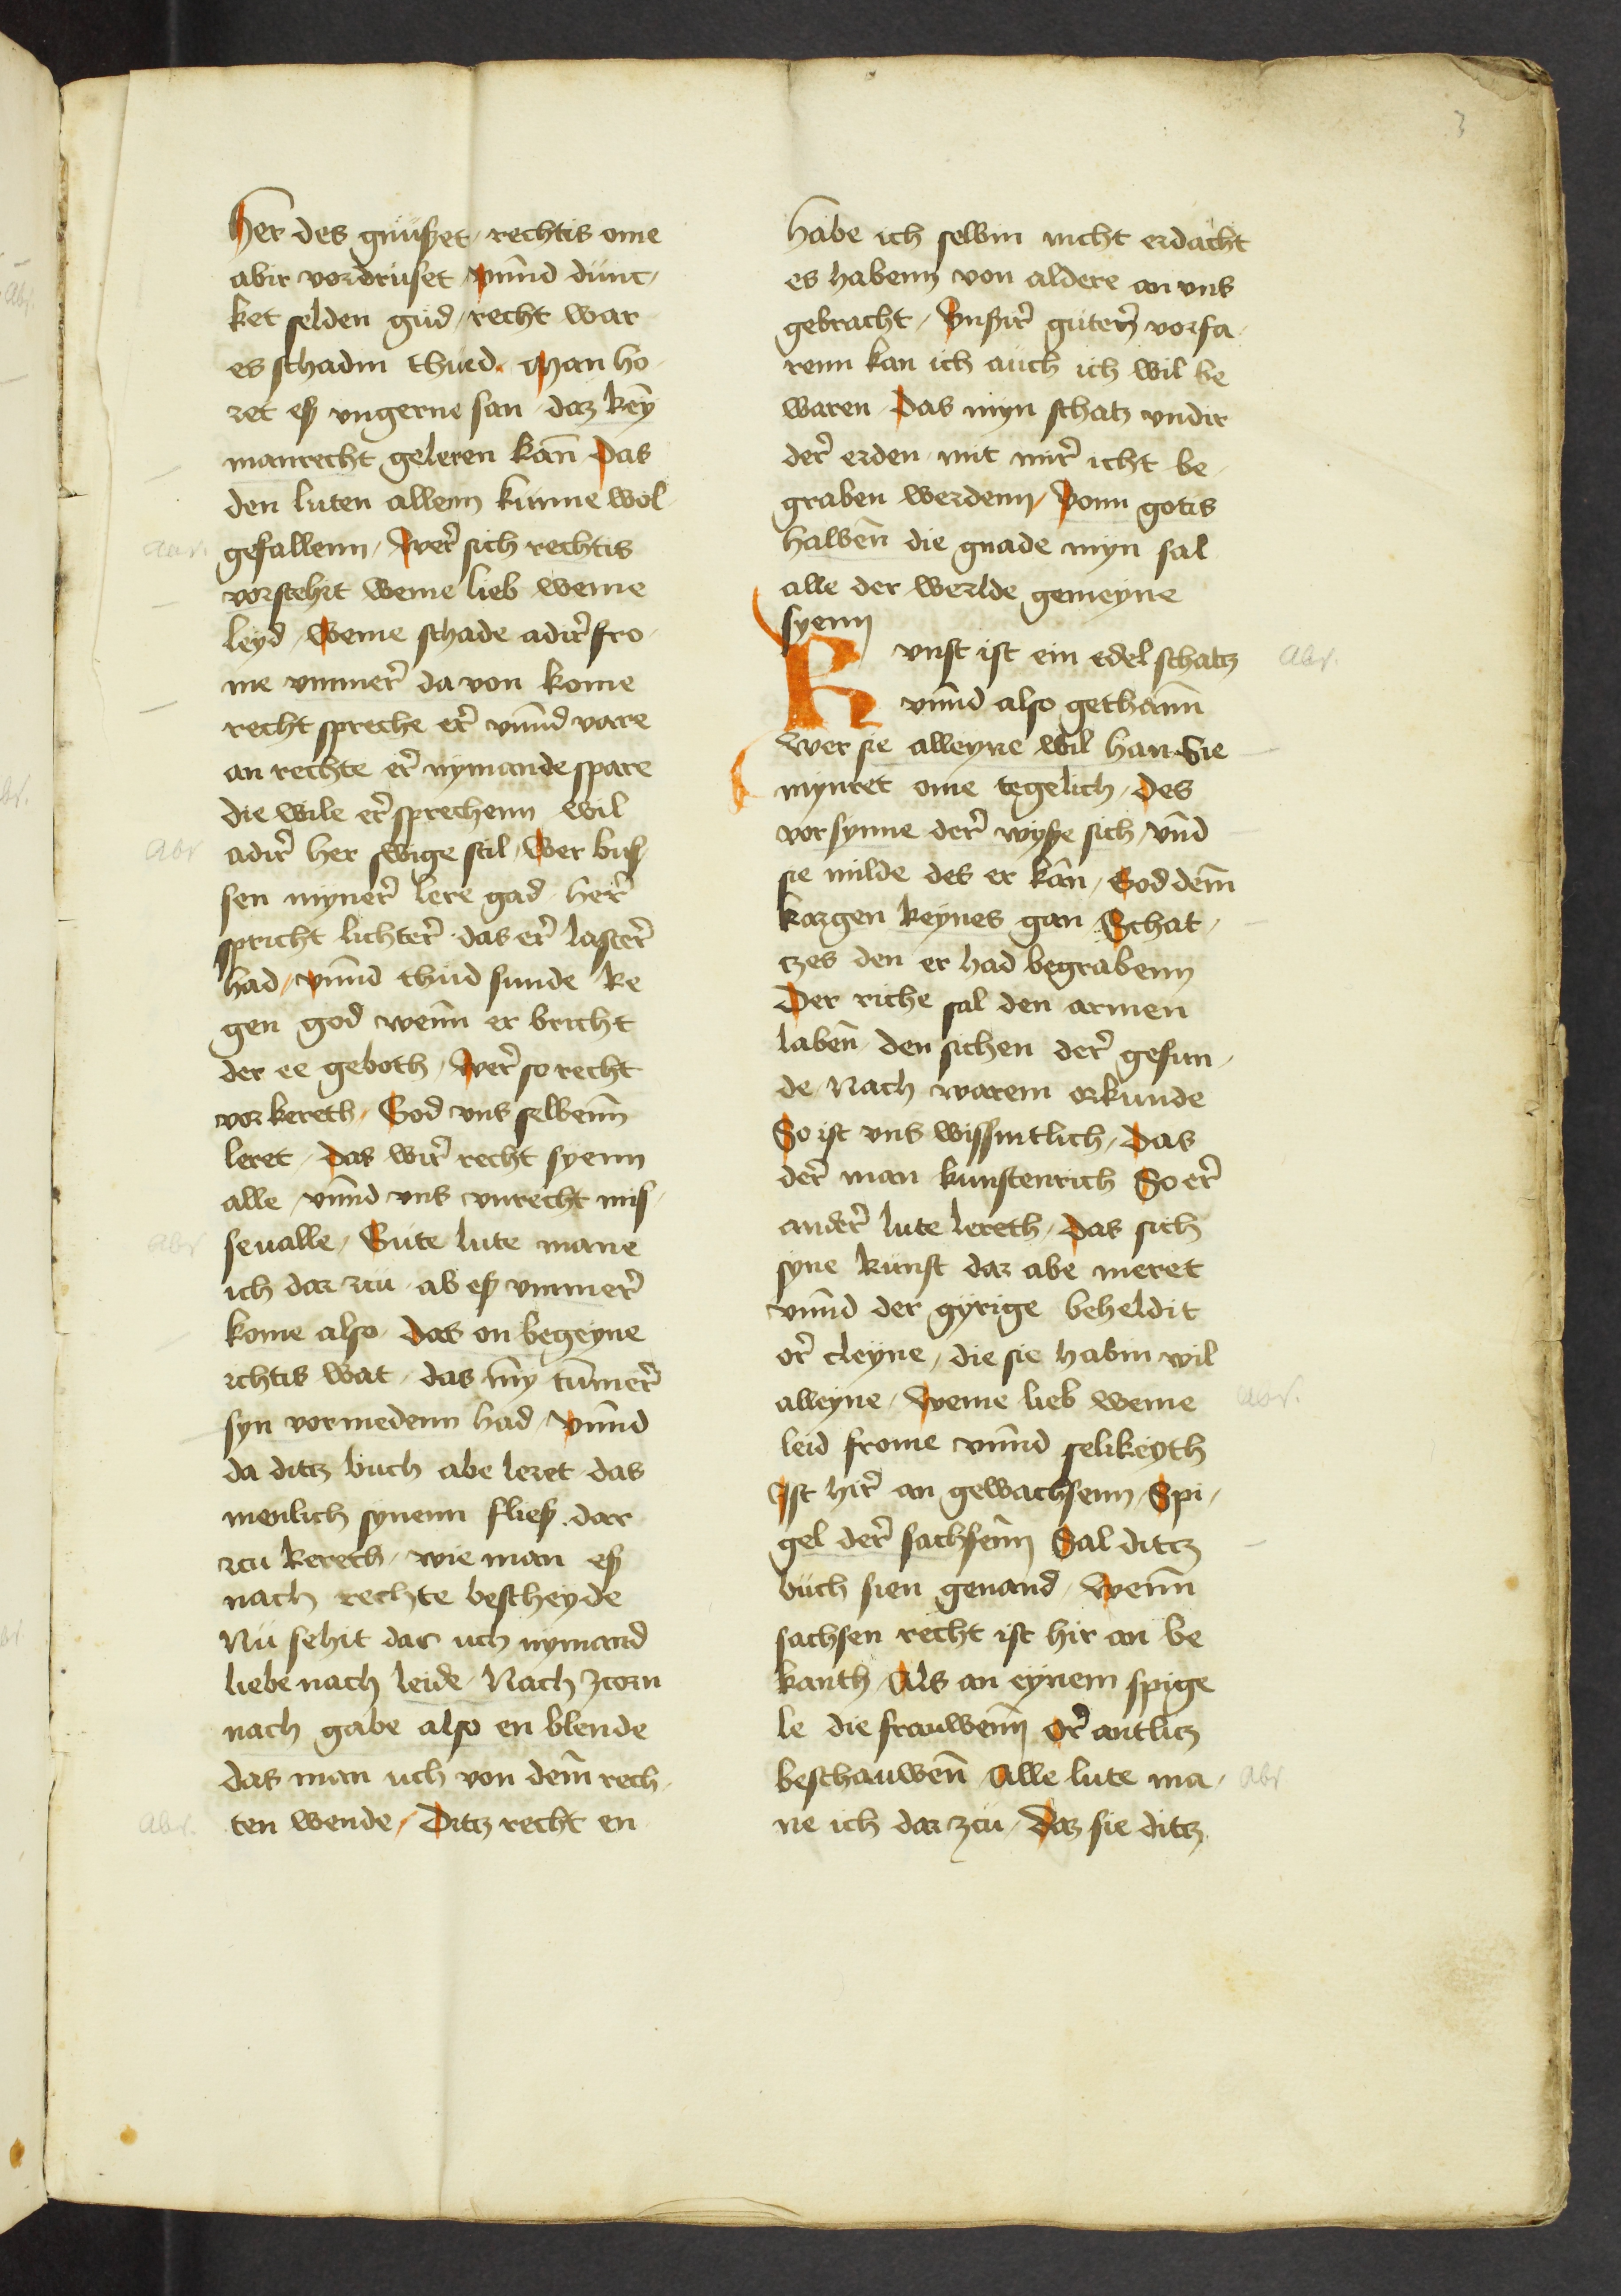 3
her des gnüßet / rechtis ome
abir vordrüset / vnnd dünc,
ket selden güd / recht war
es schadin thüed. Man ho,
ret eß vngerne san / daz keȳ
manrecht geleren kan̄ Das
den luten allenn künne wol
gefallenn / Wer̉ sich rechtis
vorstehit weme lieb weme
leyd / Weme schade adir̉ fro,
me vmmer̉ da von kome
recht spreche er̉ vnnd vare
an rechte er̉ nymande spare
die wile er̉ sprechenn wil
adir̉ her swige stil / Wer buß,
sen myner̉ lere gad / her̉
spricht lichter̉ das er̉ laster̉
had / vnnd thüd sunde ke
gen god wenn̄ er bricht
der ee geboth / Wer̉ so recht
vorkereth / God vns selbenn̄
leret / Das wir̉ recht syenn
alle / vnnd vns vnrecht mis,
seualle / Güte lute mane
ich dar zcu / ab eß vmmer̉
kome also / Das on begeyne
ichtis wat / das mȳ tūmer̉
syn vormedenn had / Vnnd
da ditz büch abe leret / das
menlich synenn fließ dar
zcu kereth / wie man eß
nach rechte bescheyde
Nü sehit dar uch nymand
liebe nach leide / Nach zcorn
nach gabe also en blende
das man uch von dem̄ rech,
ten wende / Ditz recht en
habe ich selbin nicht erdacht
es habenn von aldere an vns
gebracht / Vnßir̉ güter̉ vorfa,
renn kan ich aüch ich wil be
waren / Das myn schatz vndir
der̉ erden mit mir̉ icht be,
graben werdenn / Vonn gotis
halben̄ die gnade myn sal
alle der werlde gemeyne
syenn
Kvnst ist ein edel schatz
vnnd also gethann̄
Wer sie alleyne wil han Sie
mynret ome tegelich / Des
vorsynne der̉ wyße sich / vn̄d
sie milde des er kan / God dem̄
kargen keynes gan Schat,
czes den er had begrabenn
Der riche sal den armen
laben̄ / den sichen der̉ gesun,
de / Nach warem orkunde
So ist vns wissintlich / Das
der̉ man kunstenrich So er̉
ander̉ lute lereth / Das sich
syne künst dar abe meret
vnnd der gyrige beheldit
or̉ cleyne / die sie habin wil
alleyne / Weme lieb weme
leid frome vnnd selikeyth
Ist hir̉ an gewachsenn / Spi,
gel der̉ sachsenn̄ Sal ditz
büch sien genand / Wenn̄
sachsen recht ist hir an be
kanth / Als an eynem spige
le die frauwenn̄ Or̉ antlitz
beschauwen̄ / Alle lute ma,
ne ich dar zcü / Daz sie ditz
Abs.
Abs
Abs
Abs.
Abs.
Abs.
Abs